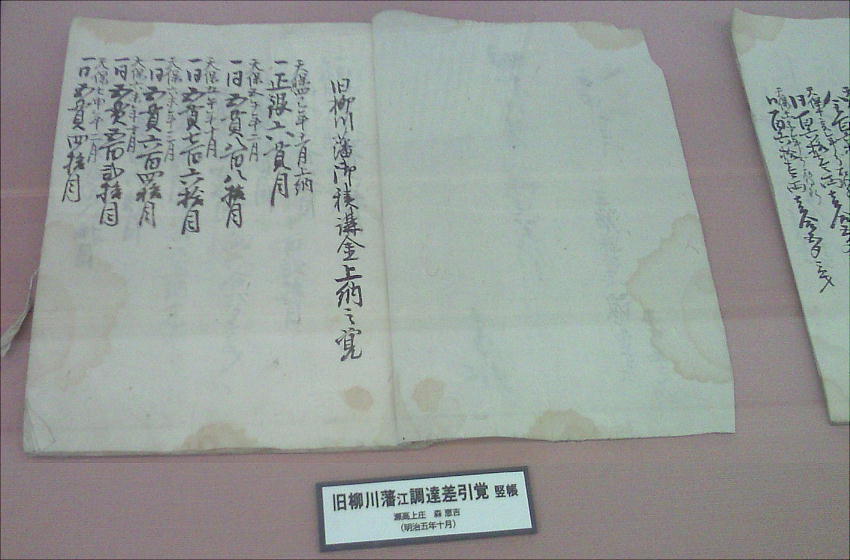 旧柳川藩御積講金上納之覚
天保四巳年十一月上納
一正銀六貫目
天保五午年二月
一同五貫八百八拾目
天保五午年十月
一同五貫七百六拾目
天保六未年二月
一同五貫六百四拾目
天保六未年十月
一同五貫五百弐拾目
天保七申年二月
一同五貫四拾目
旧柳川藩江調達差引覚 竪帳
瀬高上庄 森 恵吉
(明治五年十月)